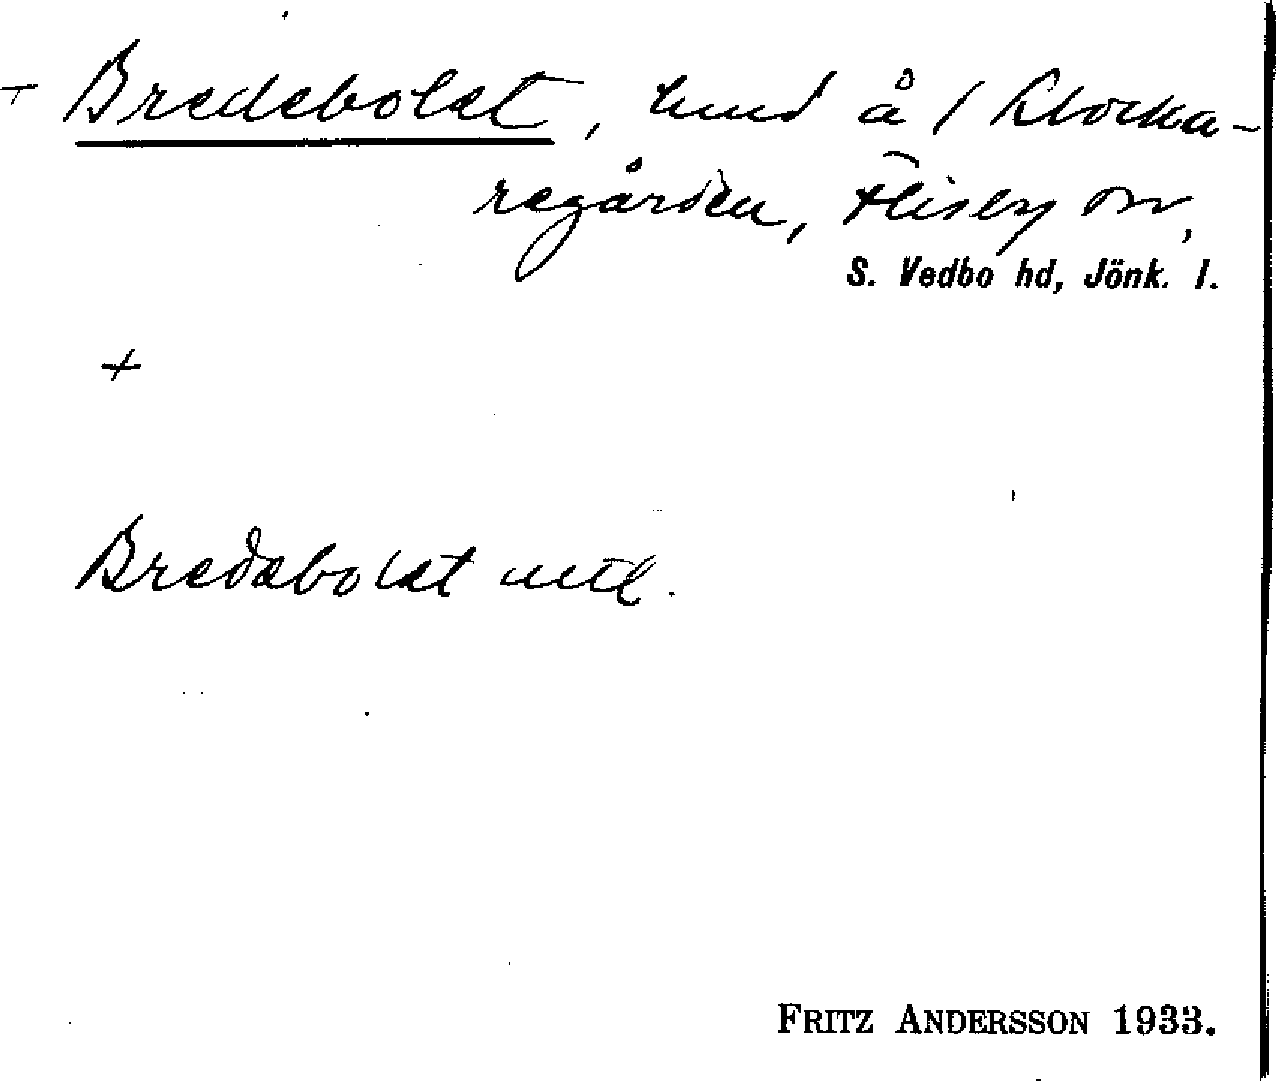 + Bredebolet, lund å / Klocka-
regården, Flisby sn,
S. Vedbo hd, Jönk. l.
+
Bredebolet utl.
FRITZ ANDERSSON 1933.